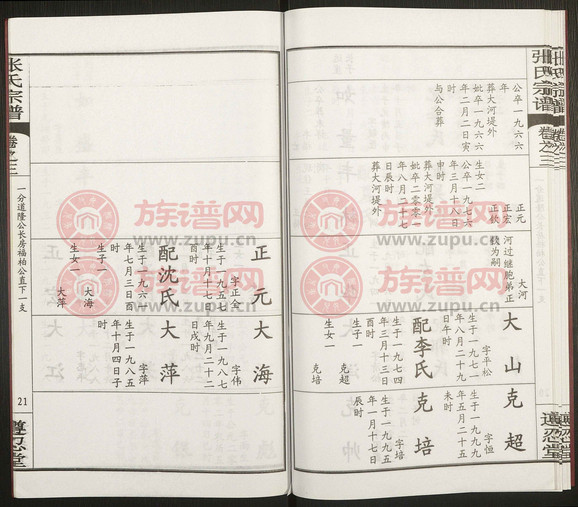 张氏宗谱
卷之三
遵忍堂
公卒一九六六
年
葬大河堤外
妣卒一九六六
年二月二日寅
时
与公合葬
生女二
公卒一九七六
年三月十八日
申时
葬大河堤外
妣卒二零零一
年八月二十七
日辰时
葬大河堤外
正元
正宏
正钦
大河
河过继胞弟正
钦为嗣
大山
字平松
生于一九七一
年八月二十七
日午时
配李氏
生于一九七四
年三月十三日
酉时
生子一
克超
生女一
克培
克超
字恒
生于一九九九
年五月二十五
未时
克培
字培
生于一九九五
年一月十七日
辰时
正元
字正全
生于一九五七
年十月十七日
时
配沈氏
生于一九六一
年七月三日酉
时
生子一
大海
生女一
大萍
大海
字伟
生于一九八七
年九月二十二
日戌时
大萍
字萍
生于一九八八
年十月四日子
时
张氏宗谱
卷之三
一分道隆公长房福柏公直下一支
21
遵忍堂
族谱网
www.zupu.cn
族谱网
www.zupu.cn
族谱网
www.zupu.cn
族谱网
www.zupu.cn